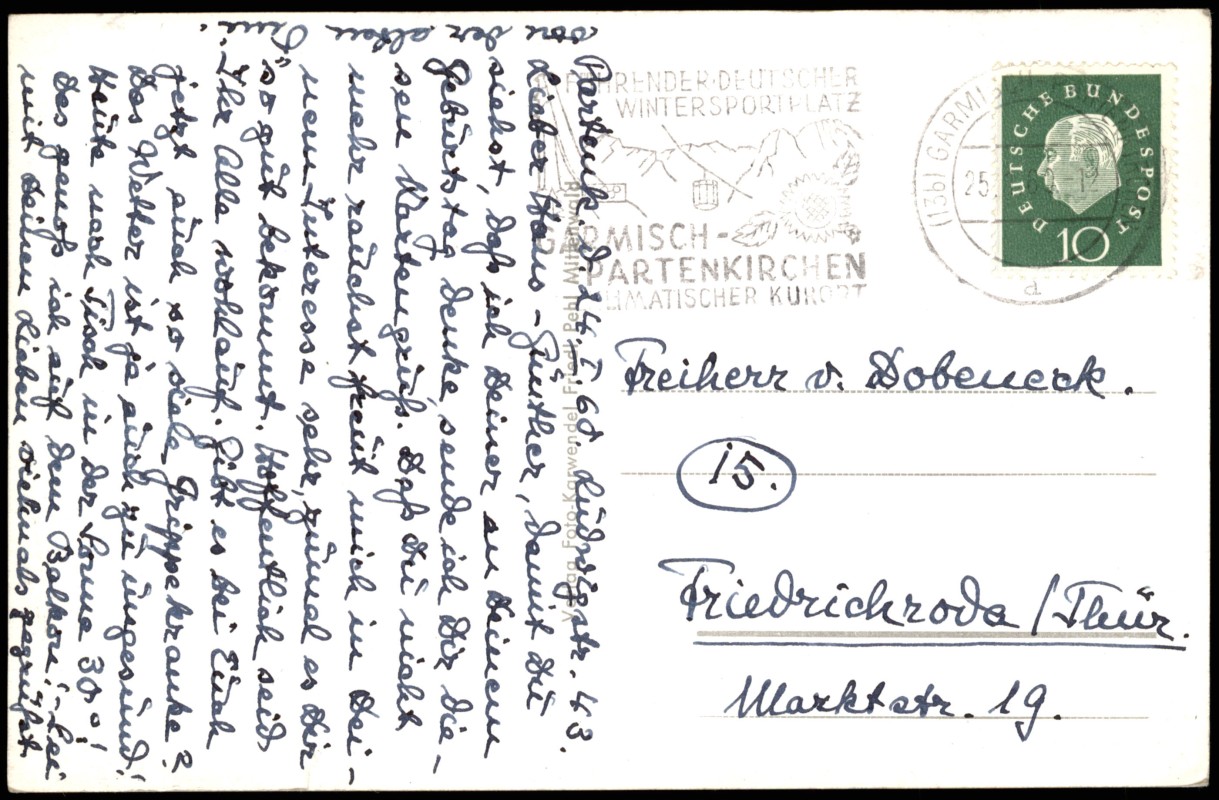 Partenk. d. 24. I. 60. Ludwigstr. 43.
Lieber Hans-Günther, damit Du
siehst, daß ich Deiner an Deinem
Geburtstag denke, sende ich Dir die-
sen Kartengruß. Daß Du nicht
mehr rauchst freut mich in Dei-
nem Interesse sehr, zumal es Dir
so gut bekommt. Hoffentlich seid
Ihr Alle wohlauf. Gibt es bei Euch
jetzt auch so viele Grippekranke?
Das Wetter ist ja auch zu ungesund!
Heute nach Tisch in der Sonne 30°!
Das genoß ich auf dem Balkon! - Sei
mit Deinen Lieben vielmals gegrüßt
von der alten
Verlag Foto-Karwendel Friedl Pehl Mittenwald
FÜHRENDER DEUTSCHER
WINTERSPORTPLATZ
GARMISCH-
PARTENKIRCHEN
KLIMATISCHER KURORT
(13b) GARMI
25.
a
DEUTSCHE BUNDESPOST
10
Freiherr v. Dobeneck.
15.
Friedrichroda/Thür.
Marktstr. 19.